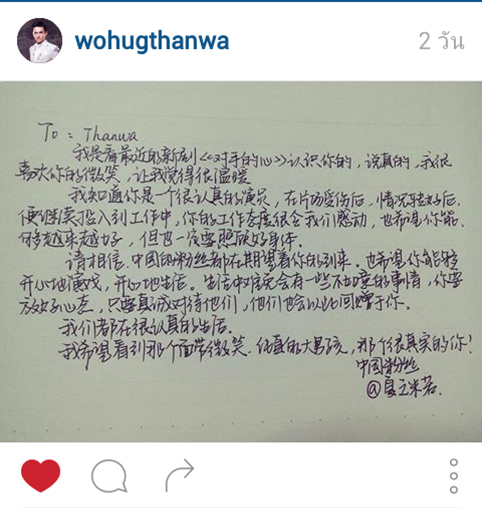 wohugthanwa
2 วัน
To: Thanwa
我是看最近的新剧《《对手的心》》认识你的，说真的，我很
喜欢你的微笑，让我觉得很温暖
我知道你是一个很认真的演员，在片场受伤后，情况转好后，
便继续投入到工作中，你的工作态度很令我们感动，也希望你能
够越来越好，但也一定要照顾好身体。
请相信，中国的粉丝都在期望着你的到来。也希望你能够
开心地演戏，开心地生活。生活中难免会有一些不如意的事情，你要
放好心态，只要真诚对待他们，他们也会以此回赠于你。
我们都在很认真的生活。
我希望看到那个面带微笑、纯真的大男孩，那个很真实的你！
中国粉丝
@夏之米若.